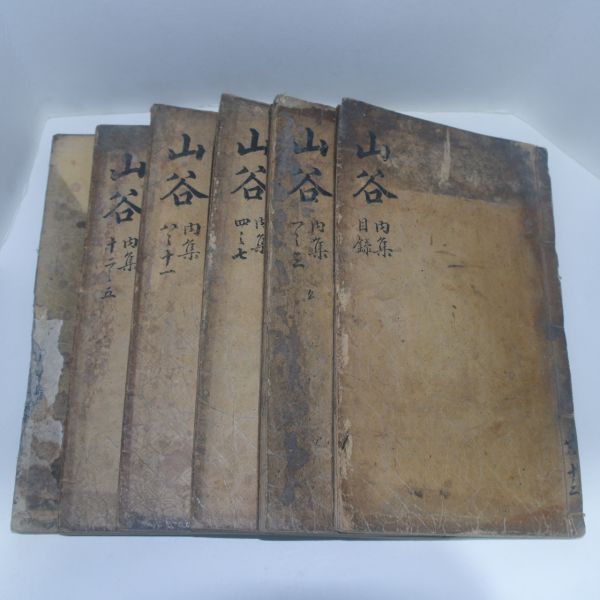 山谷
内集
目録
共十三
山谷
内集
一之三
山谷
内集
四之七
山谷
内集
八之十一
山谷
内集
十二之五